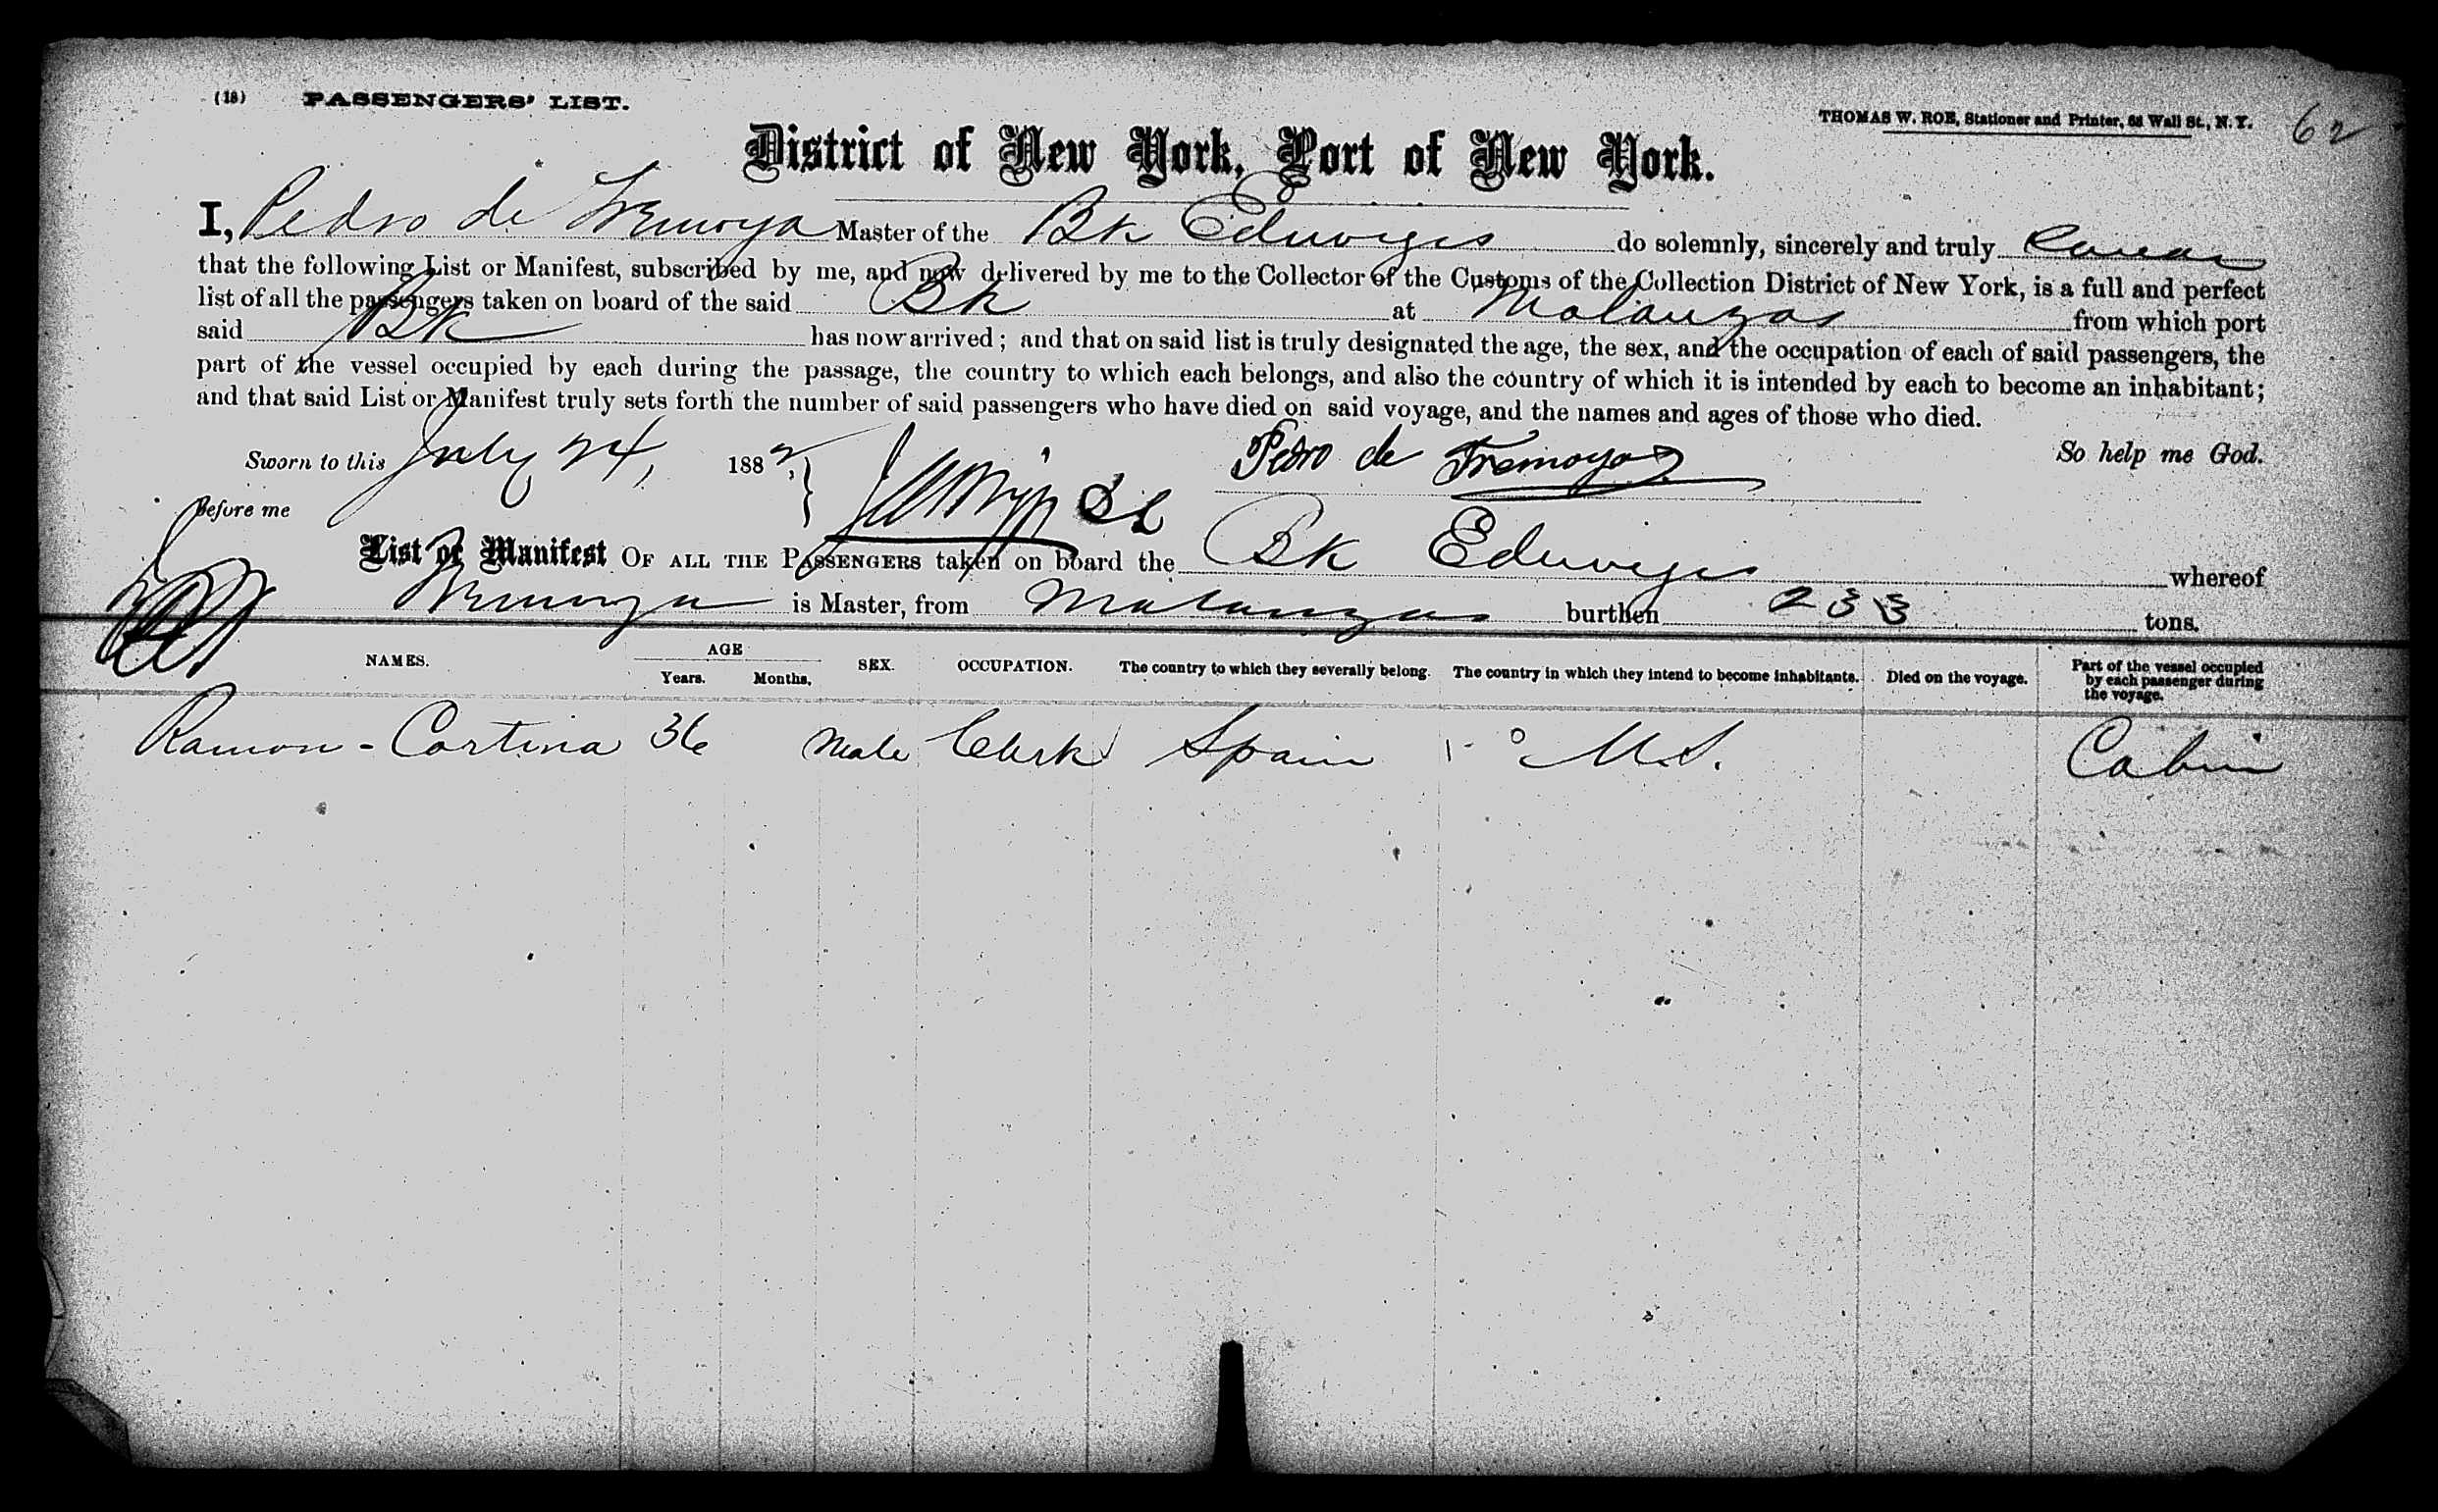 (18) PASSENGERS' LIST.
THOMAS W. ROE, Stationer and Printer, 68 Wall St., N.Y. 62
District of New York, Port of New York.
I, Pedro de Tremoya Master of the Bk Eduvigis do solemnly, sincerely and truly swear
that the following List or Manifest, subscribed by me, and now delivered by me to the Collector of the Customs of the Collection District of New York, is a full and perfect
list of all the passengers taken on board of the said Bk at Matanzas from which port
said Bk has now arrived; and that on said list is truly designated the age, the sex, and the occupation of each of said passengers, the
part of the vessel occupied by each during the passage, the country to which each belongs, and also the country of which it is intended by each to become an inhabitant;
and that said List or Manifest truly sets forth the number of said passengers who have died on said voyage, and the names and ages of those who died.
Sworn to this July 24, 1882, Pedro de Tremoya So help me God.
Before me
List or Manifest OF ALL THE PASSENGERS taken on board the Bk Eduvigis whereof
Tremoya is Master, from Matanzas burthen 233 tons.
NAMES. AGE Years. Months. SEX. OCCUPATION. The country to which they severally belong. The country in which they intend to become inhabitants. Died on the voyage. Part of the vessel occupied by each passenger during the voyage.
Ramon - Cortina 36 Male Clerk Spain U.S. Cabin